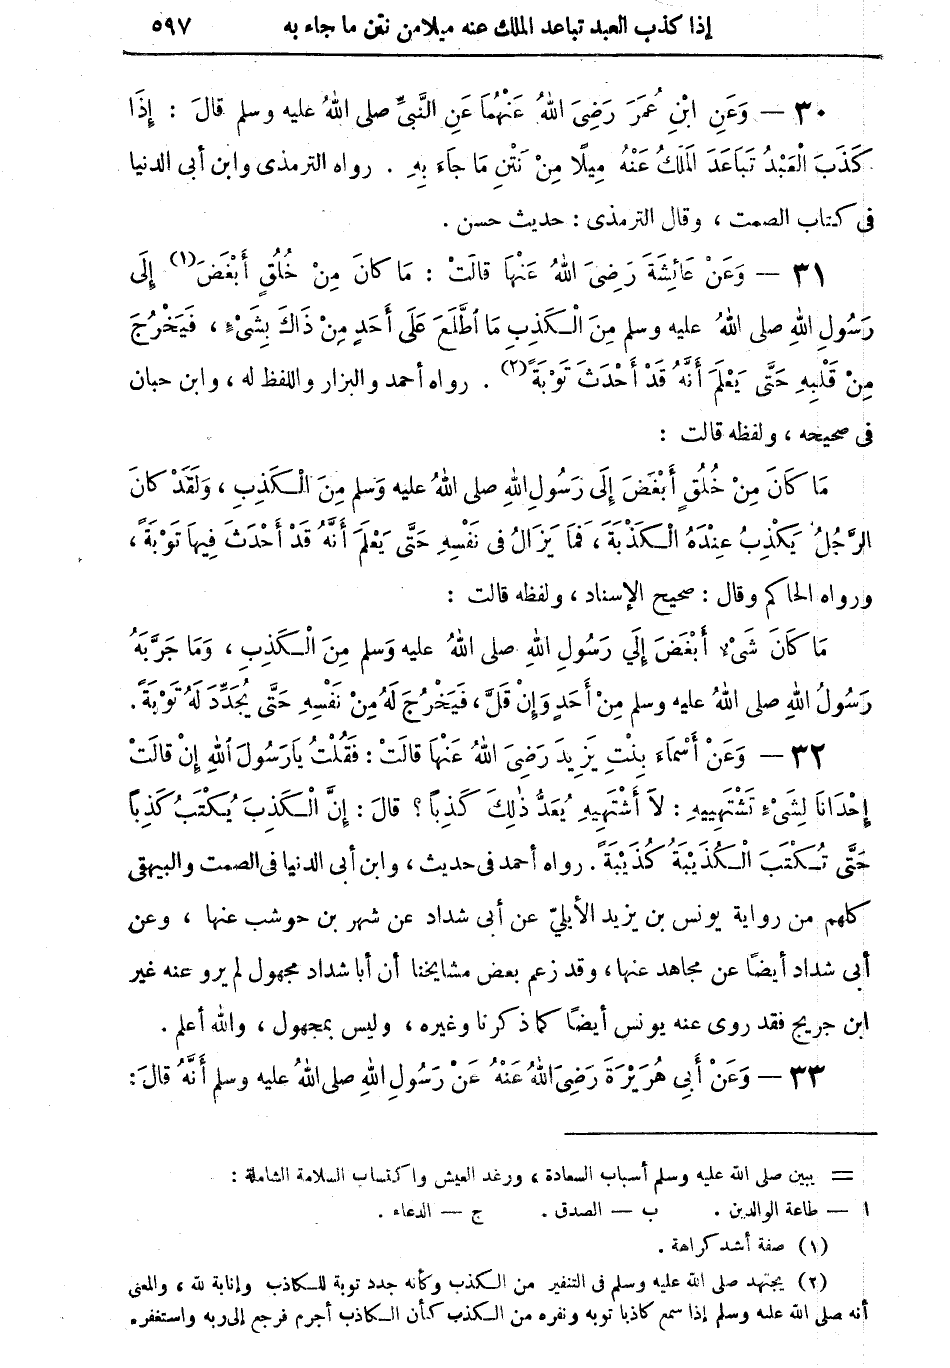 إذا كذب العبد تباعد الملك عنه ميلا من نتن ما جاء به ٥٩٧
٣٠ — وَعَنِ ابْنِ عُمَرَ رَضِيَ اللهُ عَنْهُمَا عَنِ النَّبِيِّ صلى اللهُ عليه وسلم قالَ : إِذَا
كَذَبَ الْعَبْدُ تَبَاعَدَ المَلَكُ عَنْهُ مِيلًا مِنْ نَتْنِ مَا جَاءَ بِهِ . رواه الترمذى وابن أبى الدنيا
فى كتاب الصمت ، وقال الترمذى : حديث حسن .
٣١ — وَعَنْ عَائِشَةَ رَضِيَ اللهُ عَنْهَا قالَتْ : مَا كانَ مِنْ خُلُقٍ أَبْغَضَ(١) إِلَى
رَسُولِ اللهِ صلى اللهُ عليه وسلم مِنَ الْكَذِبِ مَا اطَّلَعَ عَلَى أَحَدٍ مِنْ ذَاكَ بِشَىْءٍ ، فَيَخْرُجَ
مِنْ قَلْبِهِ حَتَّى يَعْلَمَ أَنَّهُ قَدْ أَحْدَثَ تَوْبَةً(٢) . رواه أحمد والبزار واللفظ له ، وابن حبان
فى صحيحه ، ولفظه قالت :
مَا كَانَ مِنْ خُلُقٍ أَبْغَضَ إِلَى رَسُولِ اللهِ صلى اللهُ عليه وَسلم مِنَ الْكَذِبِ ، وَلَقَدْ كانَ
الرَّجُلُ يَكْذِبُ عِنْدَهُ الْكَذْبَةَ ، فَمَا يَزَالُ فى نَفْسِهِ حَتَّى يَعْلَمَ أَنَّهُ قَدْ أَحْدَثَ فِيهَا تَوْبَةً ،
ورواه الحاكم وقال : صحيح الإسناد ، ولفظه قالت :
مَا كَانَ شَىْءٌ أَبْغَضَ إِلَي رَسُولِ اللهِ صلى اللهُ عليه وَسلم مِنَ الْكَذِبِ ، وَمَا جَرَّبَهُ
رَسُولُ اللهِ صلى اللهُ عليه وسلم مِنْ أَحَدٍ وَإِنْ قَلَّ ، فَيَخْرُجَ لَهُ مِنْ نَفْسِهِ حَتَّى يُجَدِّدَ لَهُ تَوْبَةً .
٣٢ — وَعَنْ أَسْمَاءَ بِنْتِ يَزِيدَ رَضِيَ اللهُ عَنْهَا قالَتْ : فَقُلْتُ يارَسُولَ اللهِ إِنْ قالَتْ
إِحْدَانَا لِشَىْءٍ تَشْتَهِيهِ : لاَ أَشْتَهِيهِ يُعَدُّ ذٰلِكَ كَذِباً ؟ قالَ : إِنَّ الْكَذِبَ يُكْتَبُ كَذِباً
حَتَّى تُكْتَبَ الْكُذَيْبَةُ كُذَيْبَةً . رواه أحمد فى حديث ، وابن أبى الدنيا فى الصمت والبيهقى
كلهم من رواية يونس بن يزيد الأيليّ عن أبى شداد عن شهر بن حوشب عنها ، وعن
أبى شداد أيضًا عن مجاهد عنها ، وقد زعم بعض مشايخنا أن أبا شداد مجهول لم يرو عنه غير
ابن جريج فقد روى عنه يونس أيضًا كما ذكرنا وغيره ، وليس بمجهول ، والله أعلم .
٣٣ — وَعَنْ أَبِي هُرَيْرَةَ رَضِيَ اللهُ عَنْهُ عَنْ رَسُولِ اللهِ صلى اللهُ عليه وسلم أَنَّهُ قالَ :
= يبين صلى الله عليه وسلم أسباب السعادة ، ورغد العيش واكتساب السلامة الشاملة :
ا — طاعة الوالدين . ب — الصدق . ج — الدعاء .
(١) صفة أشد كراهة .
(٢) يجتهد صلى الله عليه وسلم فى التنفير من الكذب وكأنه جدد توبة للكاذب وإنابة لله ، والمعنى
أنه صلى الله عليه وسلم إذا سمع كاذبا توبه ونفره من الكذب كأن الكاذب أجرم فرجع إلى ربه واستغفره .